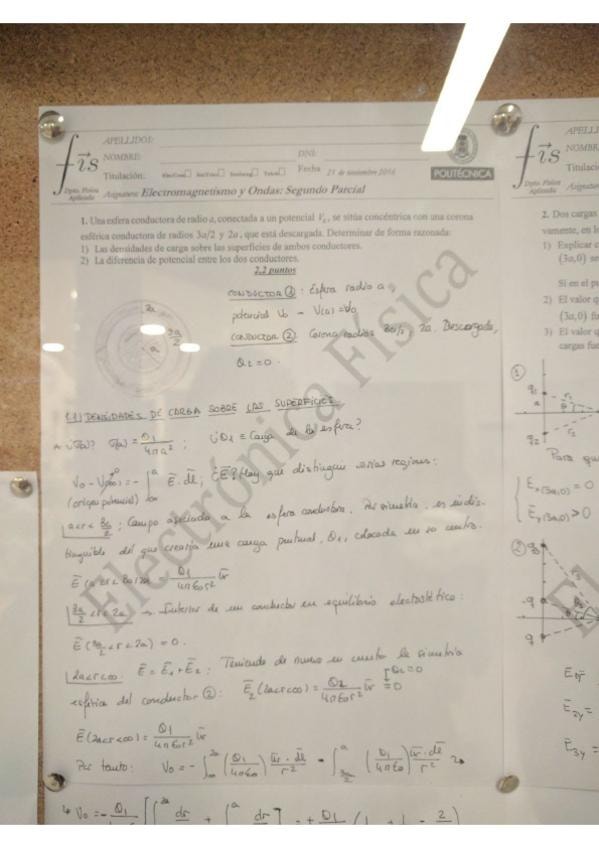 APELLIDOS:
NOMBRE:
DNI:
Titulación:
Fecha
21 de noviembre 2016
fis
Dpto. Física
Aplicada
Asignatura: Electromagnetismo y Ondas: Segundo Parcial
POLITÉCNICA
1. Una esfera conductora de radio a, conectada a un potencial V₀, se sitúa concéntrica con una corona
esférica conductora de radios 3a/2 y 2a, que está descargada. Determinar de forma razonada:
1) Las densidades de carga sobre las superficies de ambos conductores.
2) La diferencia de potencial entre los dos conductores.
2.2 puntos
CONDUCTOR ①: Esfera radio a,
potencial V₀ → V(a)=V₀
CONDUCTOR ②: Corona radios 3a/2, 2a. Descargada,
Q₂=0.
2a
3a/2
a
1.1) DENSIDADES DE CARGA SOBRE LAS SUPERFICIES
σ(a)? σ(a) = Q₁/4πa² ; ¿Q₁ = Carga de la esfera?
V₀ - V(∞) = -∫ E·dl ; ¿E? Hay que distinguir varias regiones:
(origen potencial)
a<r<3a/2 ; Campo asociado a la esfera conductora. Por simetría, es indis-
tinguible del que crearía una carga puntual, Q₁, colocada en su centro.
E (a<r<3a/2) = Q₁/4πε₀r² ur
3a/2<r<2a → Interior de un conductor en equilibrio electrostático:
E (3a/2<r<2a) = 0.
2a<r<∞. E = E₁+E₂ ; Teniendo de nuevo en cuenta la simetría
esférica del conductor ②: E₂(2a<r<∞) = Q₂/4πε₀r² ur = 0
Q₂=0
E(2a<r<∞) = Q₁/4πε₀r² ur
Por tanto: V₀ = -∫ (Q₁/4πε₀) ur·dl/r² - ∫ (Q₁/4πε₀) ur·dl/r²
V₀ = -Q₁
Electrónica Física
APELLI
NOMBR
Titulaci
fis
Dpto. Física
Aplicada
Asignatur
2. Dos cargas
vamente, en l
1) Explicar c
(3a,0) se
Si en el p
2) El valor q
(3a,0) f
3) El valor q
cargas fu
①
q₁
a
q₂
r₁
Para qu
Ex(3a,0) = 0
Ey(3a,0) > 0
②
q₃
-q
q
r₃
E₂y =
E₃y =
El